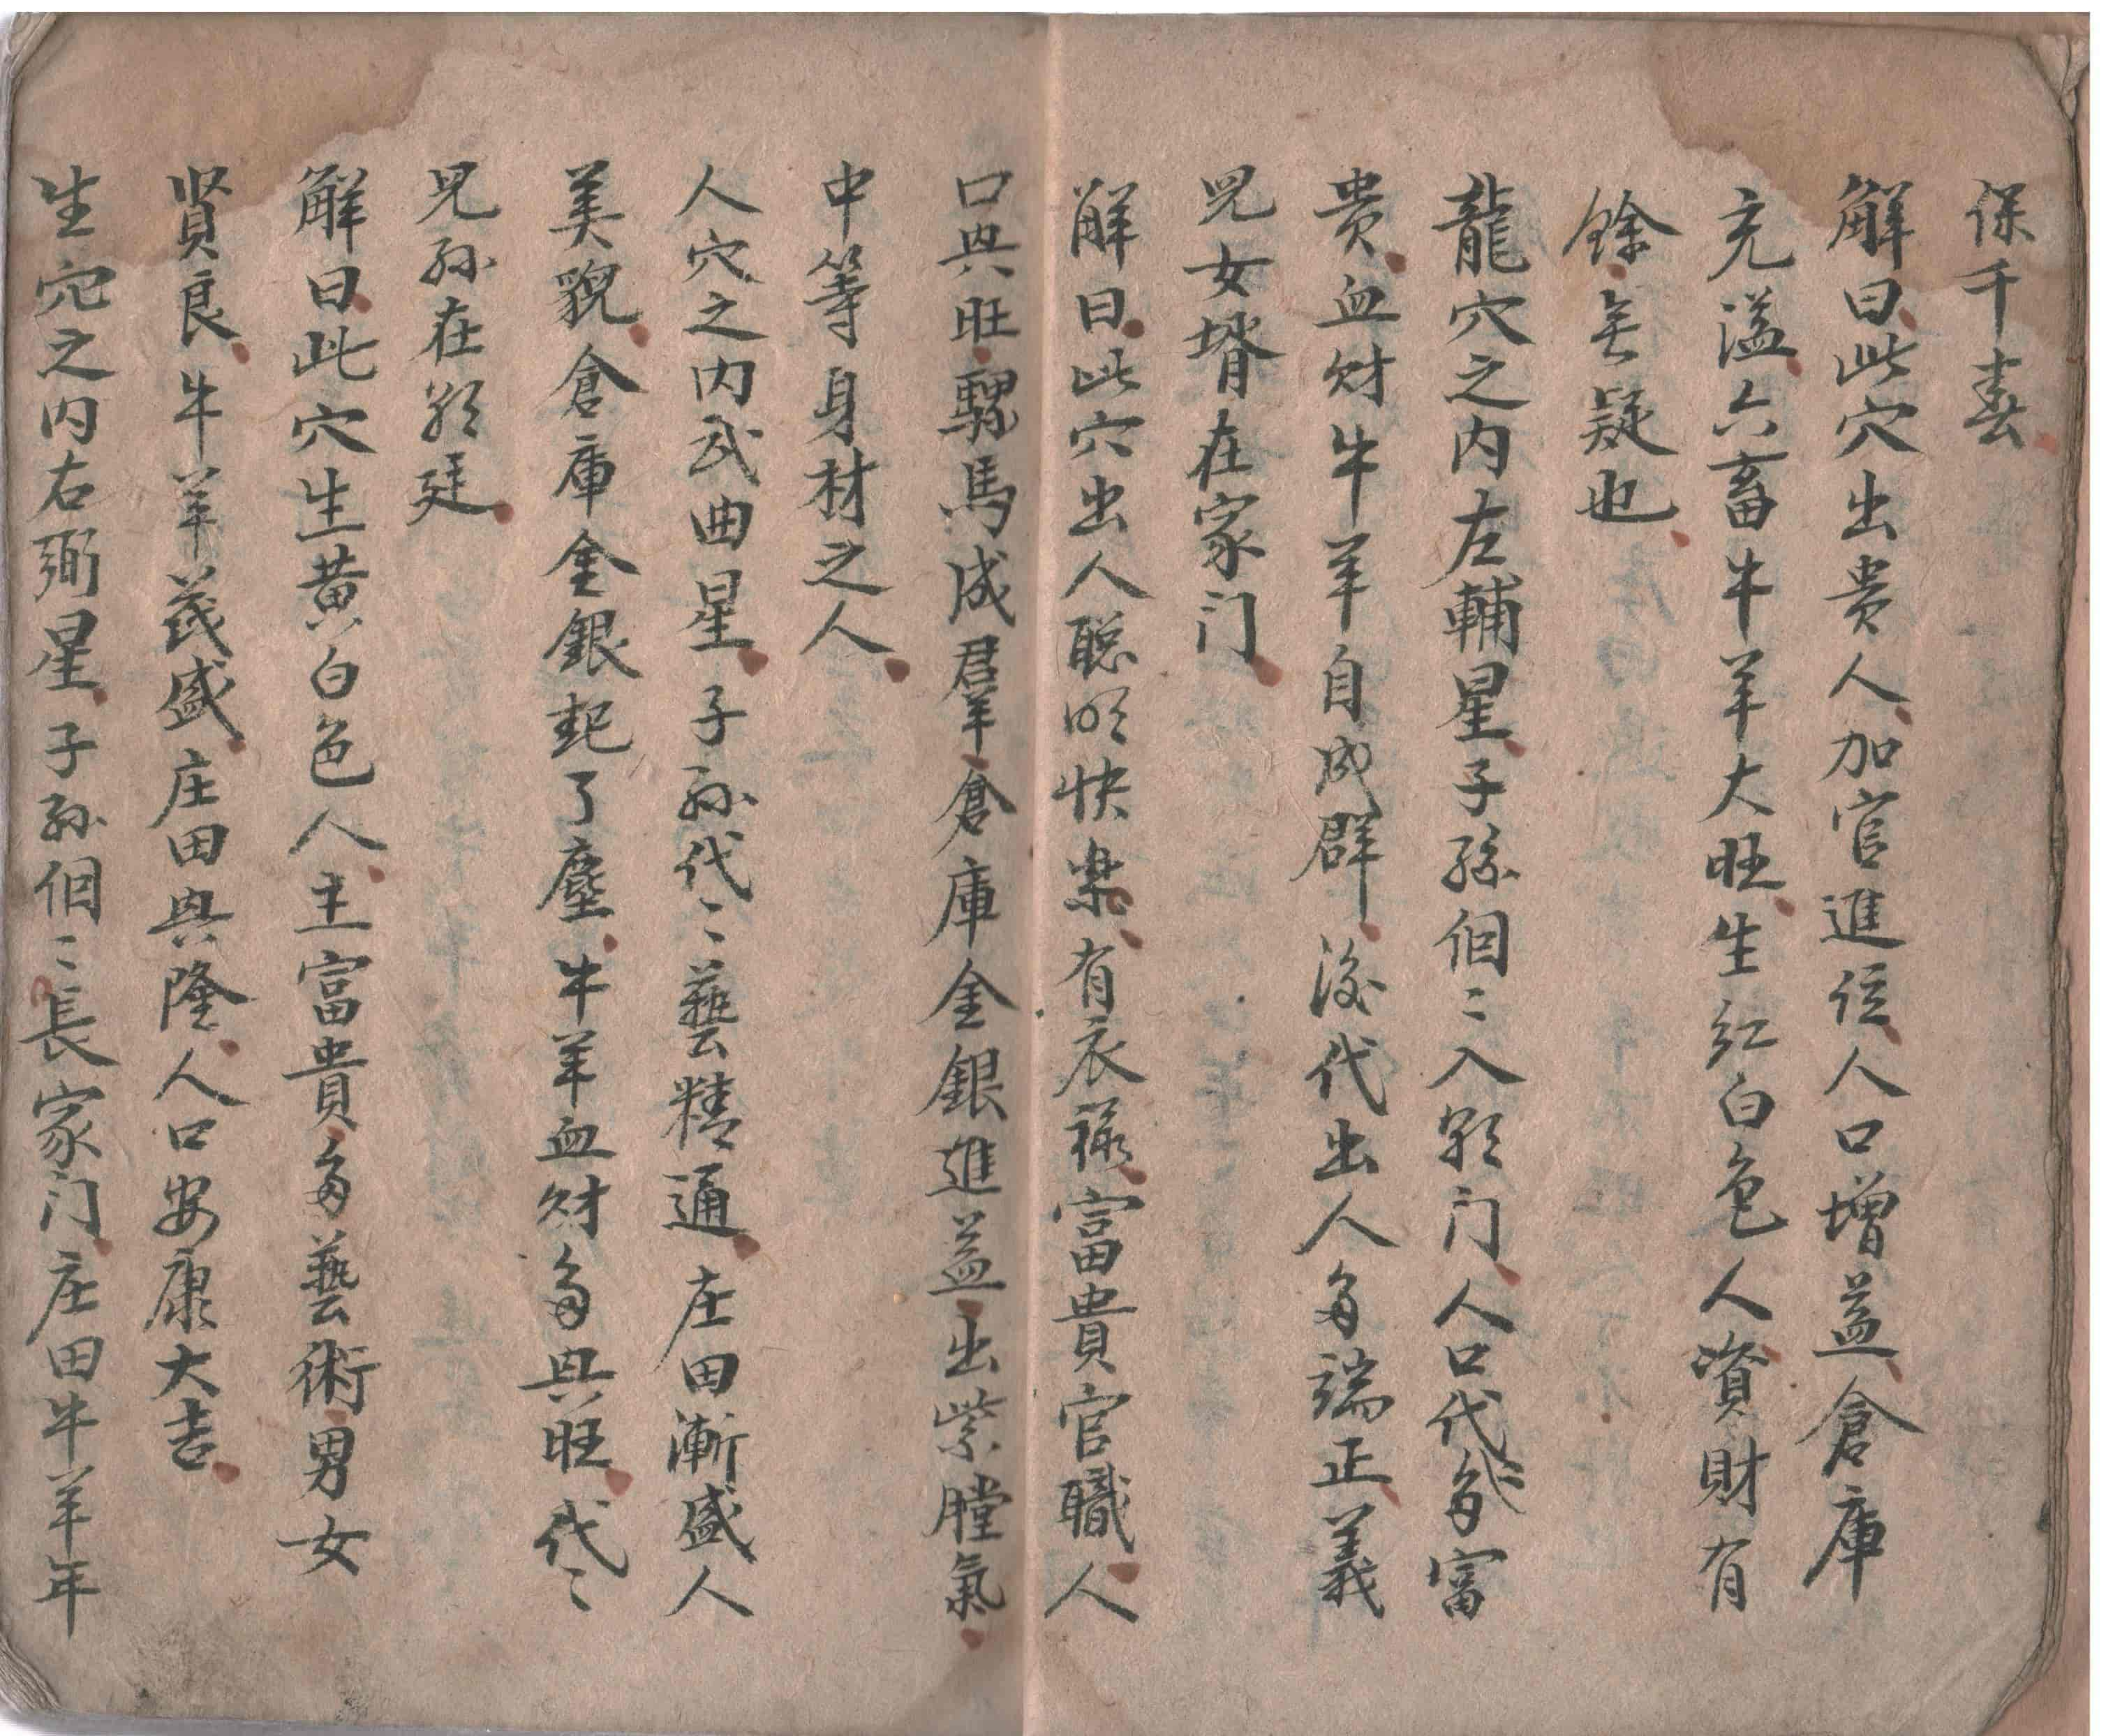 保千春
解曰此穴出贵人加官進位人口增益倉庫
充溢六畜牛羊大旺生红白色人資財有
餘无疑也
龍穴之内左輔星子孫個〻入朝门人口代〻多富
贵血财牛羊自成群後代出人多端正義
兒女壻在家门
解曰此穴出人聪明快楽有衣禄富貴官職人
口興旺騾馬成羣倉庫金銀進益出紫膛氣
中等身材之人
人穴之内武曲星子孫代〻藝精通庄田漸盛人
美貌倉庫金銀起了塵牛羊血财多興旺代〻
兒孫在朝廷
解曰此穴生黄白色人主富貴多藝術男女
贤良牛羊茂盛庄田興隆人口安康大吉
生穴之内右弼星子孫個〻長家门庄田牛羊年